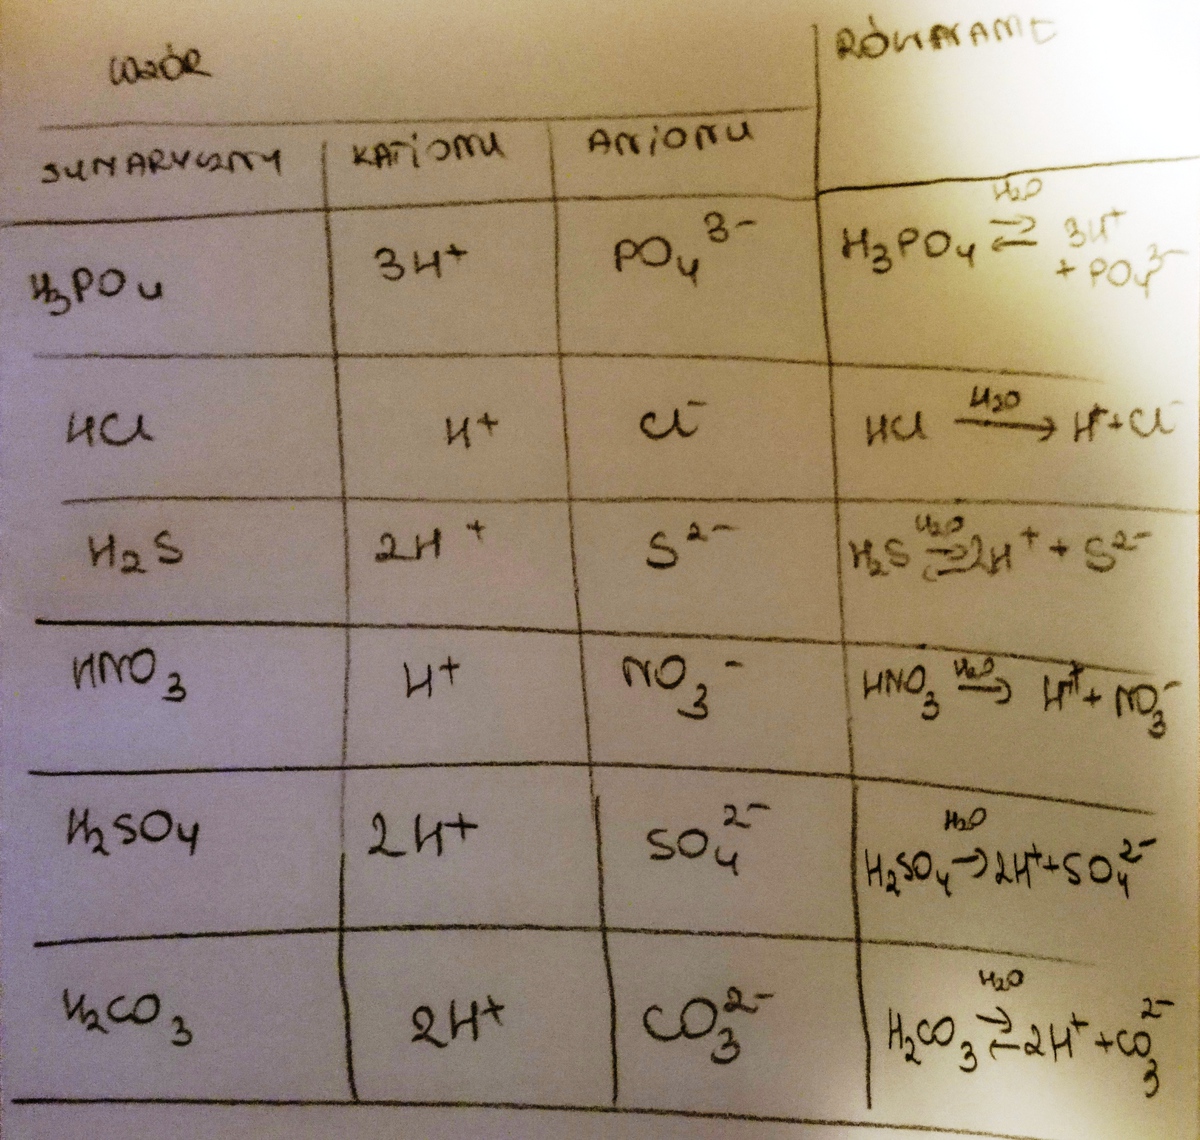 WZÓR
RÓWNANIE
SUMARYCZNY KATIONU ANIONU
H₃PO₄ 3H⁺ PO₄³⁻ H₃PO₄ ⇌ 3H⁺
H₂O
+ PO₄³⁻
HCl H⁺ Cl⁻ HCl → H⁺+Cl⁻
H₂O
H₂S 2H⁺ S²⁻ H₂S ⇌ 2H⁺ + S²⁻
H₂O
HNO₃ H⁺ NO₃⁻ HNO₃ → H⁺ + NO₃⁻
H₂O
H₂SO₄ 2H⁺ SO₄²⁻ H₂SO₄ → 2H⁺+SO₄²⁻
H₂O
H₂CO₃ 2H⁺ CO₃²⁻ H₂CO₃ ⇌ 2H⁺ + CO₃²⁻
H₂O